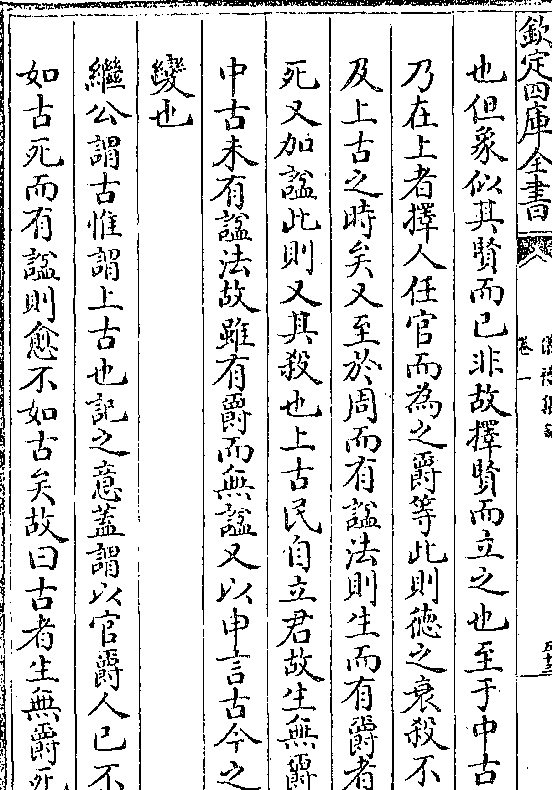 欽定四庫全書
儀禮集說
卷一
五十三
也但象似其賢而已非故擇賢而立之也至于中古
乃在上者擇人任官而為之爵等此則徳之衰殺不
及上古之時矣又至於周而有諡法則生而有爵者
死又加諡此則又其殺也上古民自立君故生無爵
中古未有諡法故雖有爵而無諡又以申言古今之
變也
繼公謂古惟謂上古也記之意蓋謂以官爵人已不
如古死而有諡則愈不如古矣故曰古者生無爵死